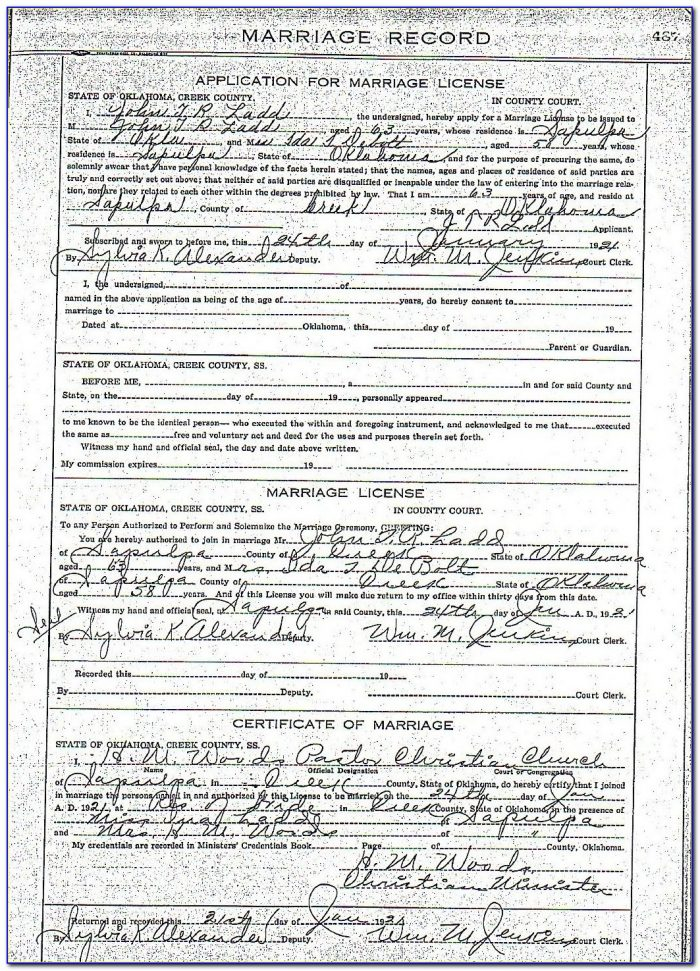 MARRIAGE RECORD 487
APPLICATION FOR MARRIAGE LICENSE
STATE OF OKLAHOMA, CREEK COUNTY. IN COUNTY COURT.
I, John T. R. Ladd the undersigned, hereby apply for a Marriage License to be issued to
M John T R Ladd aged 63 years, whose residence is Sapulpa
State of Okla and Mrs Ida L Debolt aged 58 years, whose
residence is Sapulpa, State of Oklahoma and for the purpose of procuring the same, do
solemnly swear that I have personal knowledge of the facts herein stated; that the names, ages and places of residence of said parties are
truly and correctly set out above; that neither of said parties are disqualified or incapable under the law of entering into the marriage rela-
tion, nor are they related to each other within the degrees prohibited by law. That I am 63 years of age, and reside at
Sapulpa, County of Creek, State of Oklahoma
J T R Ladd Applicant.
Subscribed and sworn to before me, this 24th day of January 1921
By Sylvia K. Alexander Deputy. Wm. M. Jenkins Court Clerk.
I, the undersigned, of
named in the above application as being of the age of years, do hereby consent to
marriage to
Dated at Oklahoma, this day of 19
Parent or Guardian.
STATE OF OKLAHOMA, CREEK COUNTY, SS.
BEFORE ME, , a in and for said County and
State, on the day of 19 , personally appeared
to me known to be the identical person— who executed the within and foregoing instrument, and acknowledged to me that executed
the same as free and voluntary act and deed for the uses and purposes therein set forth.
Witness my hand and official seal, the day and date above written.
My commission expires 19
MARRIAGE LICENSE
STATE OF OKLAHOMA, CREEK COUNTY, SS. IN COUNTY COURT.
To any Person Authorized to Perform and Solemnize the Marriage Ceremony, GREETING:
You are hereby authorized to join in marriage Mr. John T. R. Ladd
of Sapulpa County of Creek State of Oklahoma
aged 63 years, and Mrs, Ida L De Bolt
of Sapulpa County of Creek State of Oklahoma
aged 58 years. And of this License you will make due return to my office within thirty days from this date.
Witness my hand and official seal, at Sapulpa in said County, this 24th day of Jan A. D., 1921
Seal
By Sylvia K. Alexander Deputy. Wm. M. Jenkins Court Clerk.
Recorded this day of 19
By Deputy. Court Clerk.
CERTIFICATE OF MARRIAGE
STATE OF OKLAHOMA, CREEK COUNTY, SS.
I, H. M. Woods Pastor Christian Church
Name Official Designation Court or Congregation
of Sapulpa in Creek County, State of Oklahoma, do hereby certify that I joined
in marriage the persons named in and authorized by this License to be married, on the 24th day of Jan
A. D. 1921, at Res. of Bride in Creek County, State of Oklahoma, in the presence of
Miss Ladd of Sapulpa
and Mrs. H. M. Woods of "
My credentials are recorded in Ministers' Credentials Book Page of County, Oklahoma.
H. M. Woods
Christian Minister
Returned and recorded this day of Jan 1921
By Sylvia K. Alexander Deputy. Wm. M. Jenkins Court Clerk.